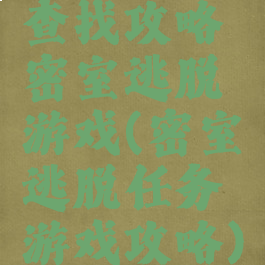 查找攻略
密室逃脱
游戏(密室
逃脱任务
游戏攻略)